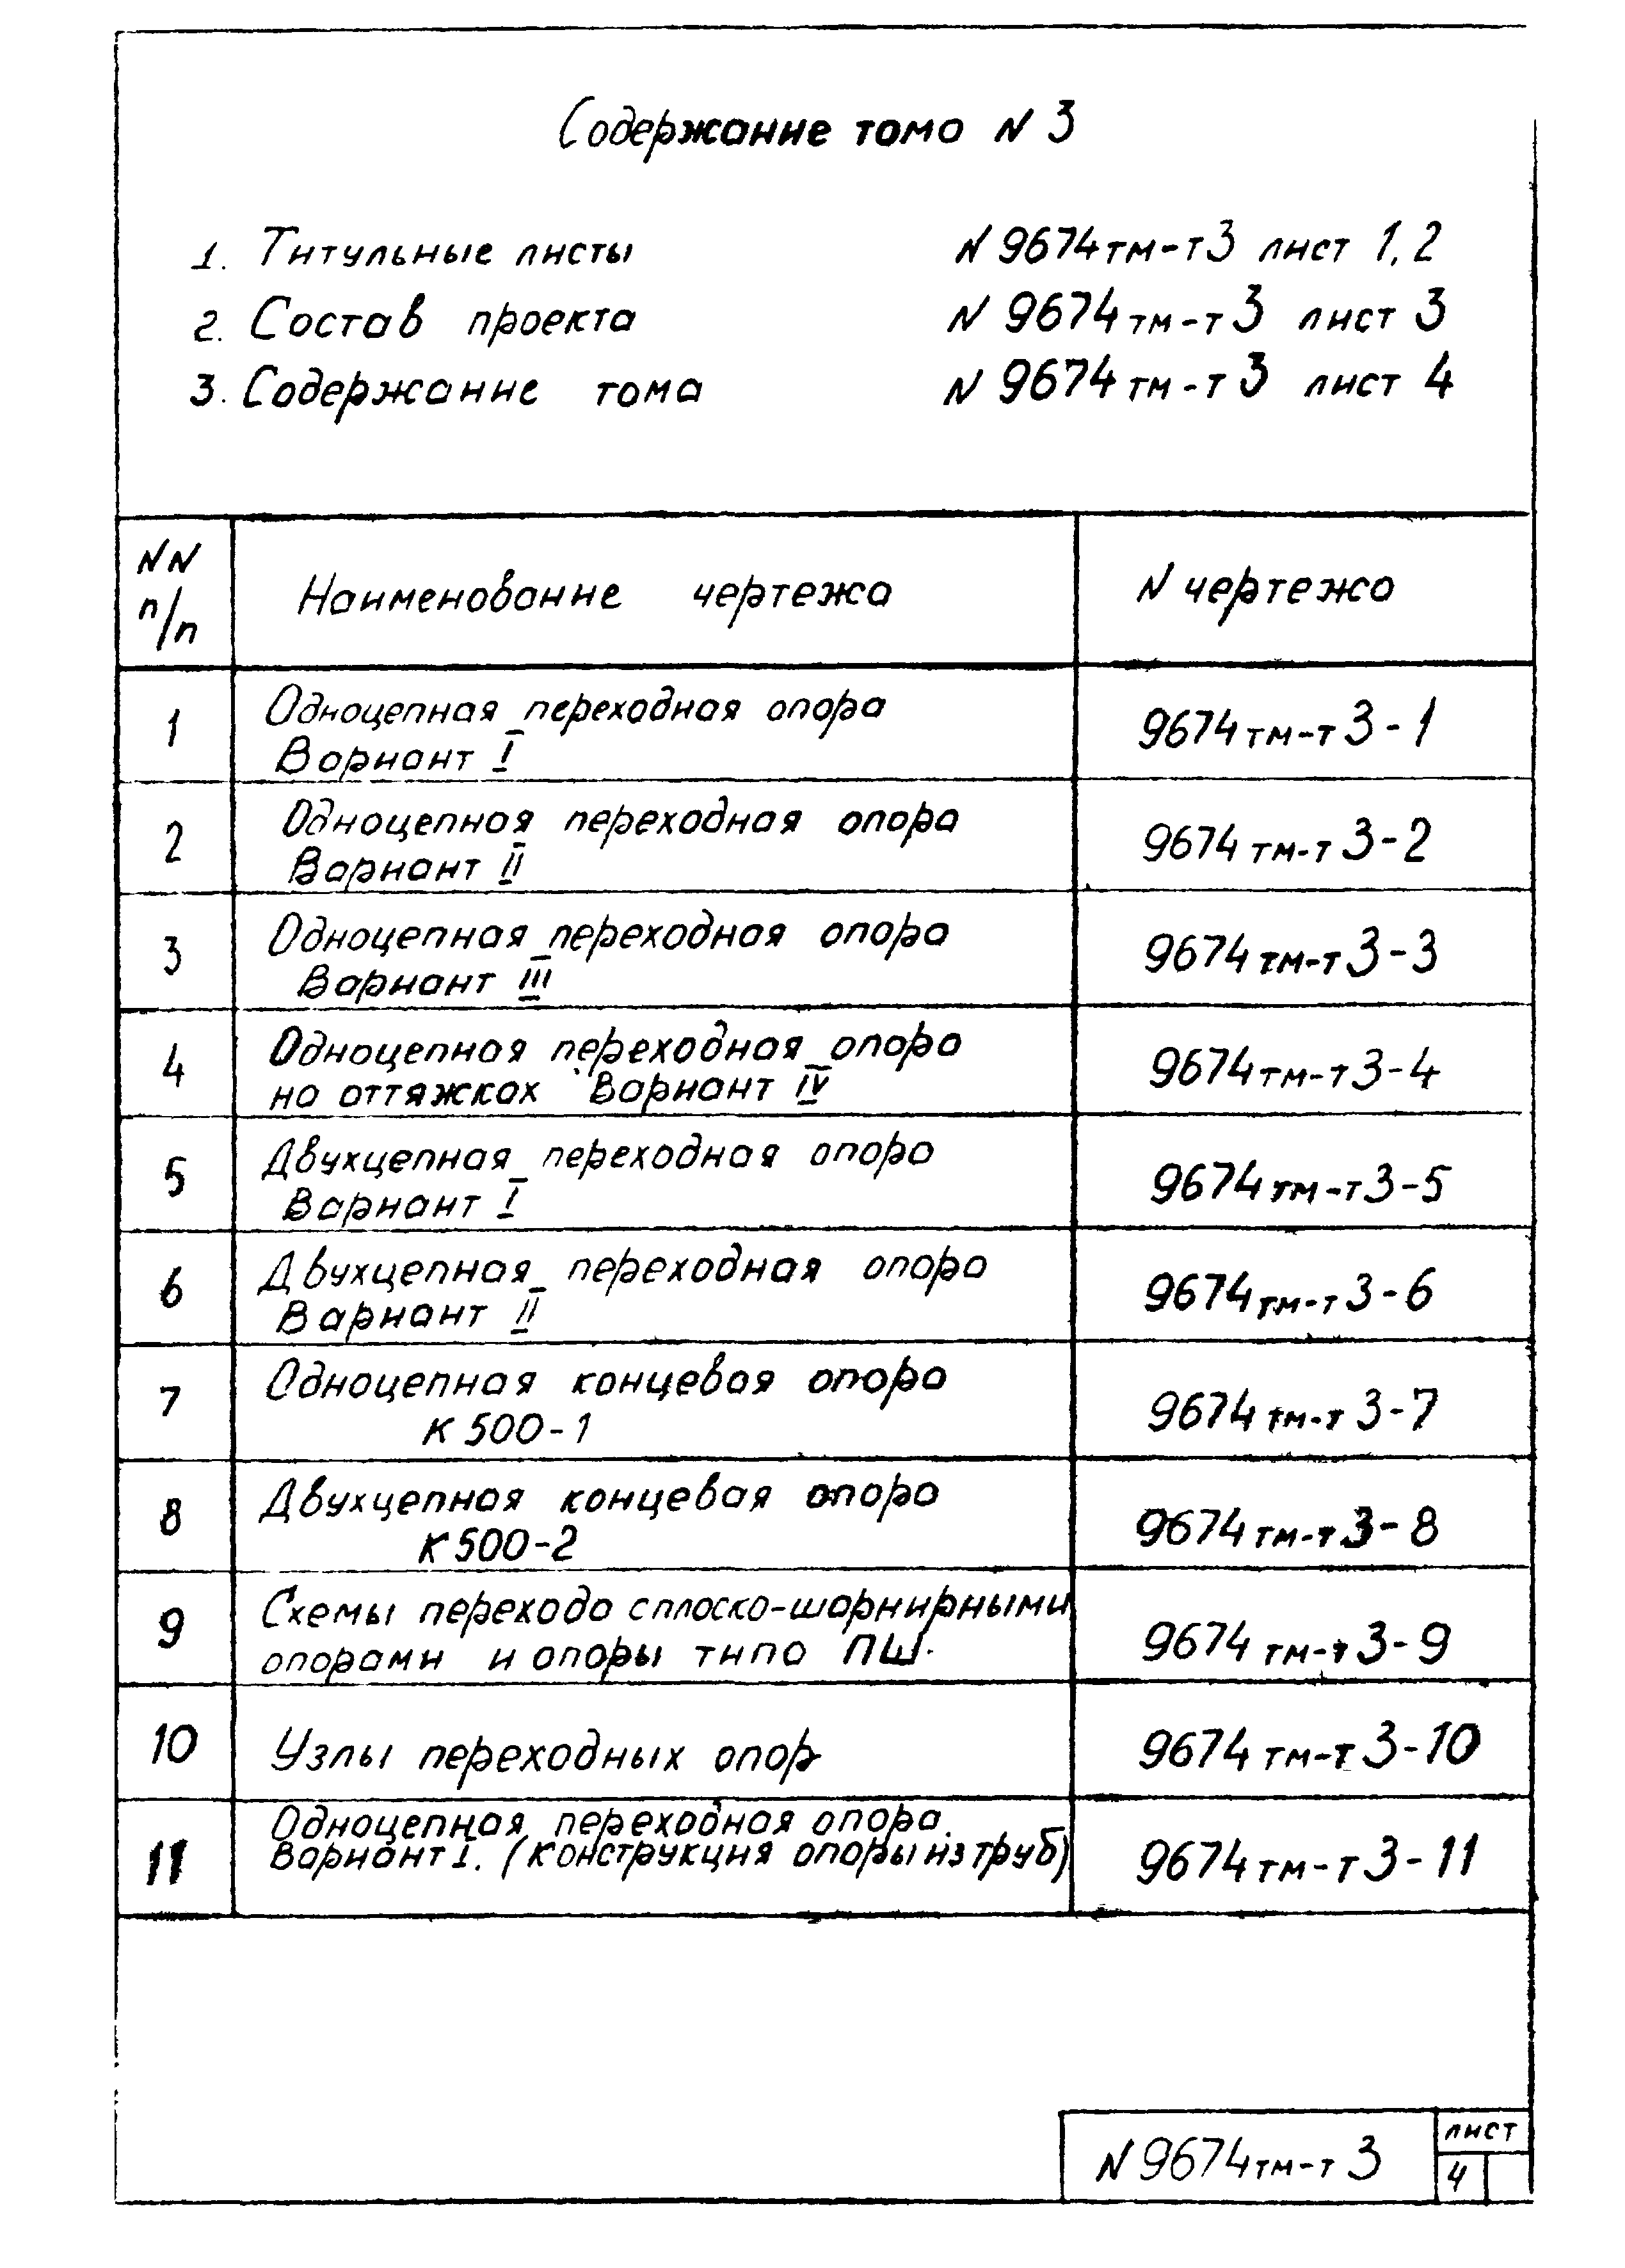 Содержание тома N 3
1. Титульные листы N 9674тм-т3 лист 1,2
2. Состав проекта N 9674тм-т3 лист 3
3. Содержание тома N 9674тм-т3 лист 4
NN п/п Наименование чертежа N чертежа
1 Одноцепная переходная опора 9674тм-т3-1
Вариант I
2 Одноцепная переходная опора 9674тм-т3-2
Вариант II
3 Одноцепная переходная опора 9674тм-т3-3
Вариант III
4 Одноцепная переходная опора 9674тм-т3-4
на оттяжках Вариант IV
5 Двухцепная переходная опора 9674тм-т3-5
Вариант I
6 Двухцепная переходная опора 9674тм-т3-6
Вариант II
7 Одноцепная концевая опора 9674тм-т3-7
К 500-1
8 Двухцепная концевая опора 9674тм-т3-8
К 500-2
9 Схемы перехода с плоско-шарнирными 9674тм-т3-9
опорами и опоры типа ПШ.
10 Узлы переходных опор 9674тм-т3-10
11 Одноцепная переходная опора. 9674тм-т3-11
Вариант I. (Конструкция опоры из труб)
N 9674тм-т3 лист
4